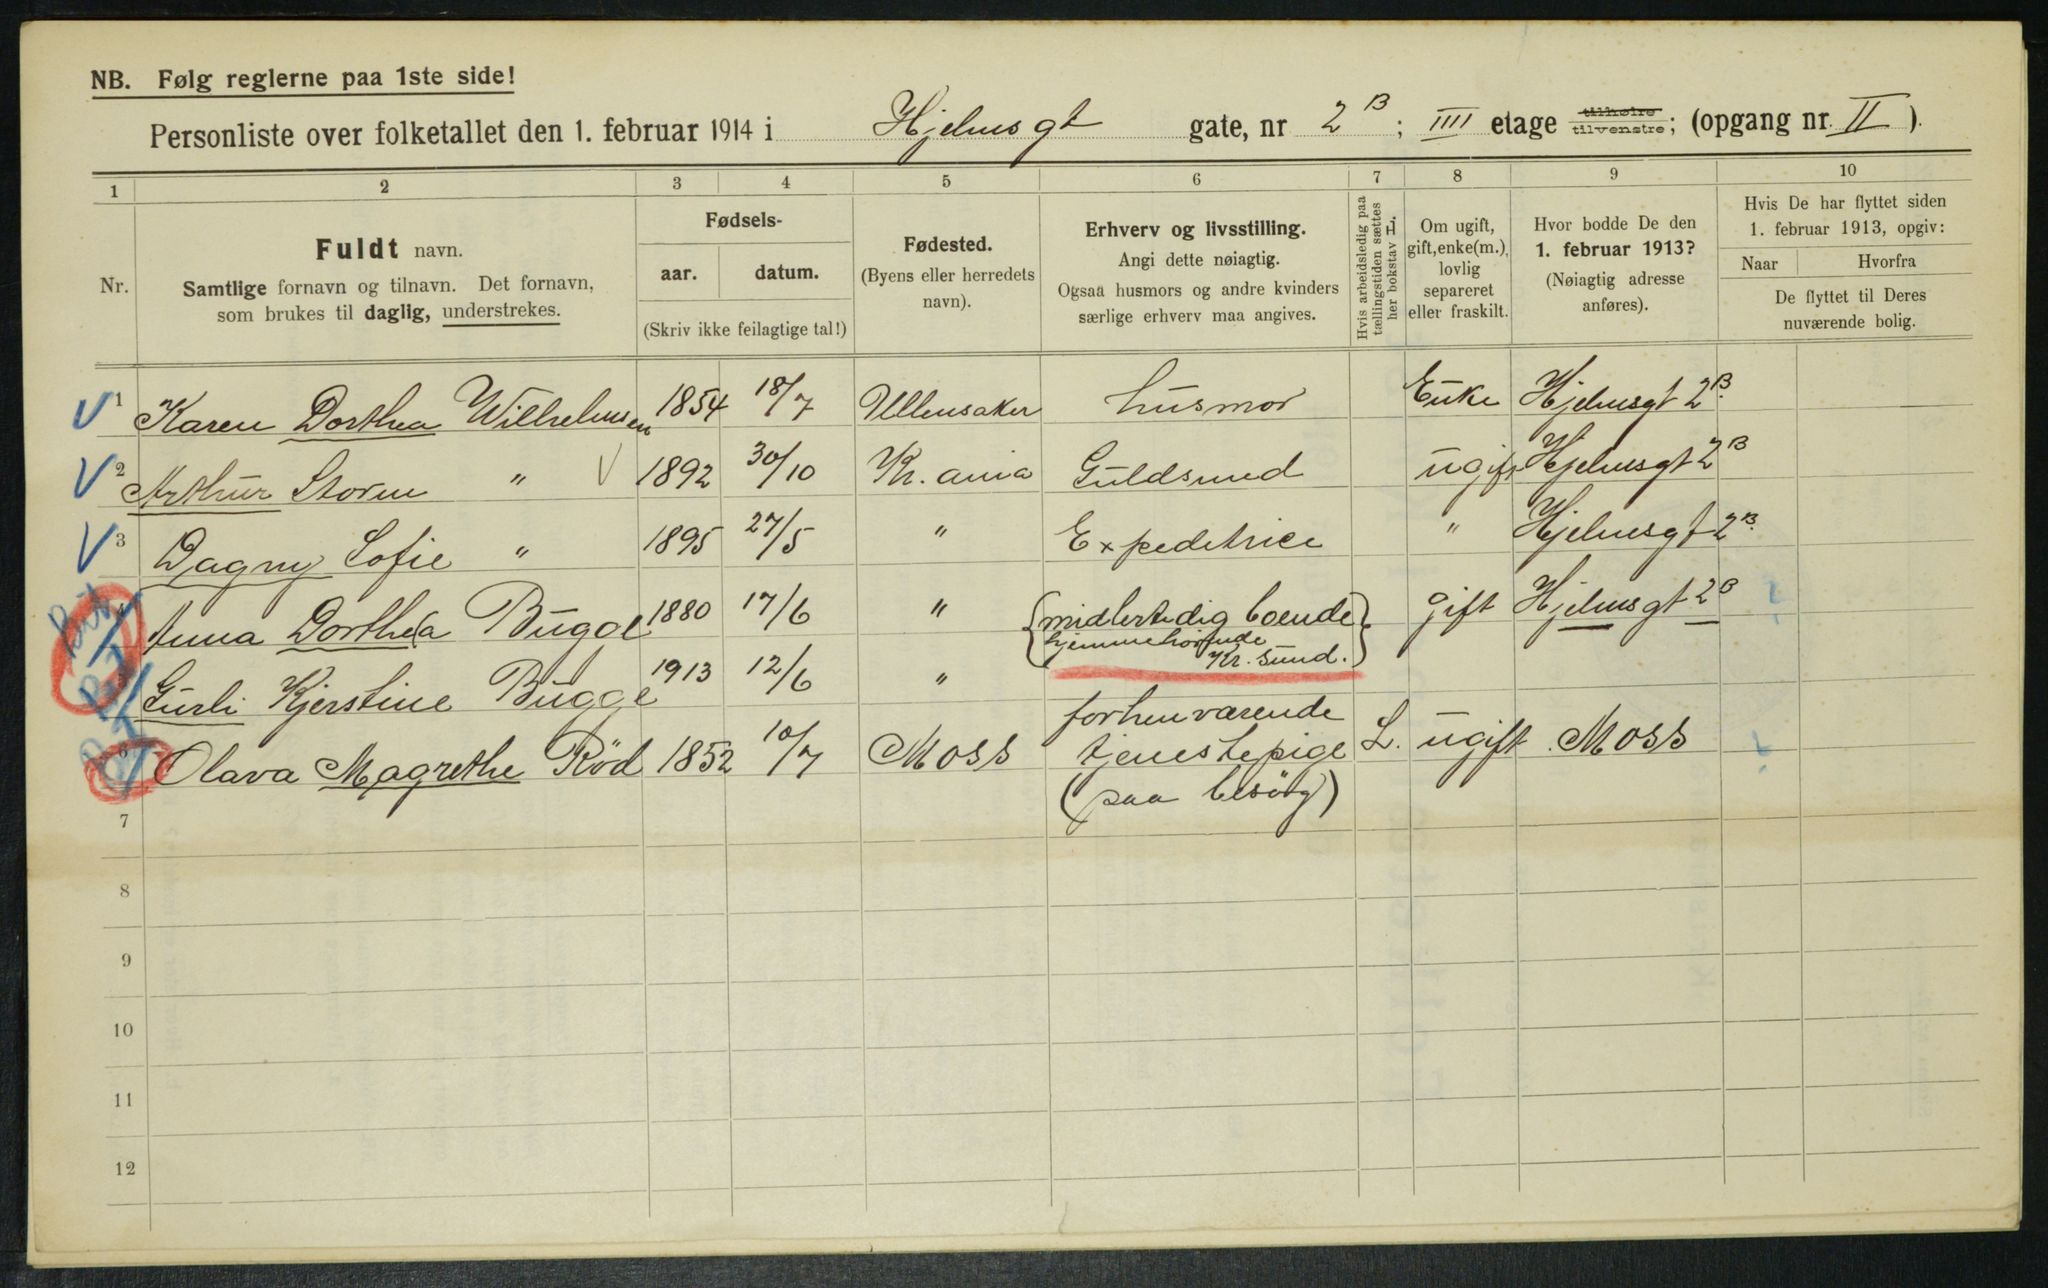 NB. Følg reglerne paa 1ste side!
Personliste over folketallet den 1. februar 1914 i Hjelmsgt gate, nr 2B; IIII etage tilhøire tilvenstre; (opgang nr. II).
1 2 3 4 5 6 7 8 9 10
Nr.
Fuldt navn.
Samtlige fornavn og tilnavn. Det fornavn,
som brukes til daglig, understrekes.
Fødsels-
aar. datum.
(Skriv ikke feilagtige tal!)
Fødested.
(Byens eller herredets
navn).
Erhverv og livsstilling.
Angi dette nøiagtig.
Ogsaa husmors og andre kvinders
særlige erhverv maa angives.
Hvis arbeidsledig paa
tællingstiden sættes
her bokstav L.
Om ugift,
gift, enke(m.),
lovlig
separeret
eller fraskilt.
Hvor bodde De den
1. februar 1913?
(Nøiagtig adresse
anføres).
Hvis De har flyttet siden
1. februar 1913, opgiv:
Naar Hvorfra
De flyttet til Deres
nuværende bolig.
V 1 Karen Dorthea Wilhelmsen 1854 18/7 Ullensaker husmor Enke Hjelmsgt 2B.
V 2 Arthur Storm " V 1892 30/10 Kr. ania Guldsmed ugift Hjelmsgt 2B
V 3 Dagny Sofie " 1895 27/5 " Expeditrice " Hjelmsgt 2B.
4 Anna Dorthea Bugge 1880 17/6 " {midlertidig boende} gift Hjelmsgt 2B
hjemmehørende
Kr. Sund.
Gurli Kjerstine Bugge 1913 12/6 "
forhenværende
6 Olava Magrethe Röd 1852 10/7 Moss tjenestepige L. ugift Moss
(paa besög)
7
8
9
10
11
12